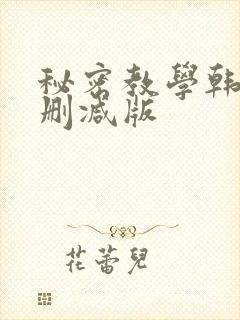 秘密教學韩
删减版
花蕾兒